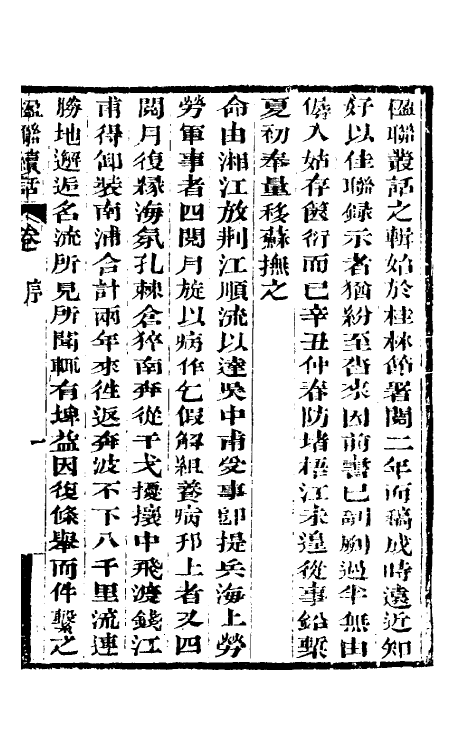 楹聯叢話之輯始於桂林節署閱二年而稿成時遠近知
好以佳聯錄示者猶紛至沓來因前書已剞劂過半無由
儕入姑存篋衍而已辛丑仲春防堵梧江未遑從事鉛槧
夏初奉量移蘇撫之
命由湘江放荊江順流以達吳中甫受事卽提兵海上勞
勞軍事者四閱月旋以病作乞假解組養疴邗上者又四
閱月復緣海氛孔棘倉猝南奔從干戈擾攘中飛渡錢江
甫得卸裝南浦合計兩年來往返奔波不下八千里流連
勝地邂逅名流所見所聞輒有埤益因復條舉而件繫之
楹聯續話 卷 序 一